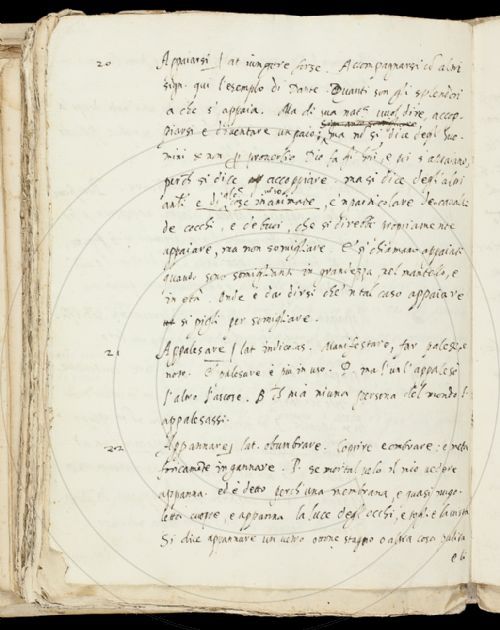 20 Appaiarsi | lat iungere forse. Accompagnarsi cō altri
sign. qui l'esempio di Dante. Quanti son gli splendori
a che s'appaia. Ma di sua natᵃ vuol dire, accop-
piarsi e diventare un paio; ma nō si dice degli huo-
mini se non pᵉ proverbio Dio fa gli hūi, e lui s'accoppiano,
perch si dice accoppiare. ma si dice degli altri
anti e di cose inanimate, e 'n particolare de cavalli
de cocchi, e de buoi, che si direbbe propriamente
appaiare, ma non somigliare. E si chiamano appaiati
quando sono somiglianti in grandezza, nel mantello, e
in età. Onde è da dirsi che 'n tal caso appaiare
si pigli per somigliare.
21 Appalesare | lat indicas. Manifestare, far palese, e
noto. E palesare è più in uso. P. ma l'un l'appalesò
l'altro l'ascose. B. mai niuna persona del mondo l'
appalesassi.
22 Appannare | lat. obumbrare. Coprire e ombrare: e meta
foricamēte ingannare. P. se mortal velo il mio vedere
appanna. ed è detto perch una membrana, e quasi nugo-
letta cuopre, e appanna la luce degli occhi, e toglie la vista
Si dice appannare un vetro ottone stagno o altra cosa pulita
e li